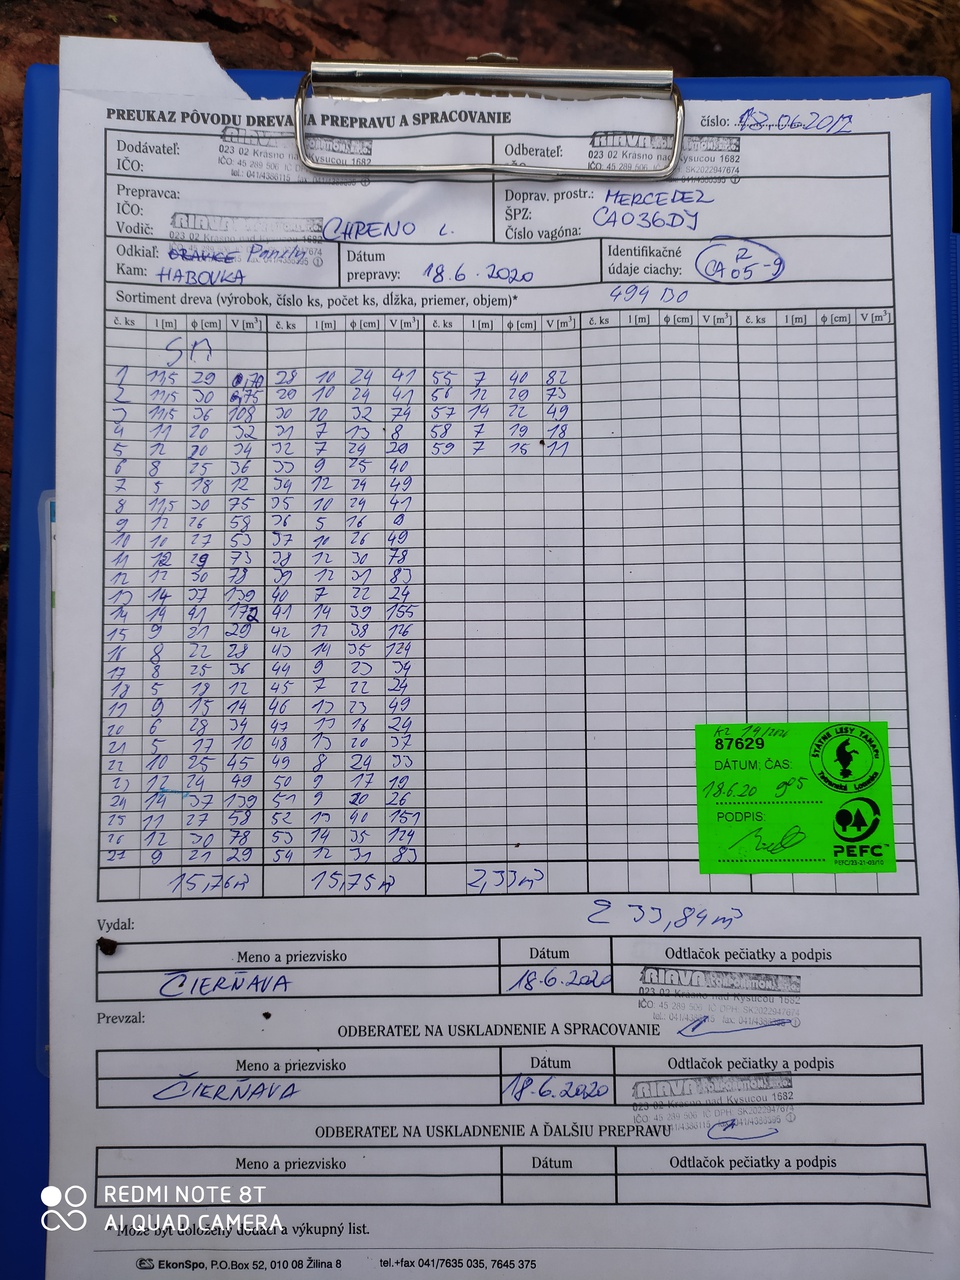 PREUKAZ PÔVODU DREVA NA PREPRAVU A SPRACOVANIE
číslo:
Dodávateľ:
IČO:
RIAVA CORPORATION s.r.o.
023 02 Krásno nad Kysucou 1682
Odberateľ:
RIAVA
023 02 Krásno nad Kysucou 1682
Prepravca:
IČO:
Vodič: CHRENO
RIAVA
Doprav. prostr.: MERCEDEZ
ŠPZ: CA036DY
Číslo vagóna:
Odkiaľ: ORAVICE
Kam: HABOVKA
Dátum
prepravy: 18.6.2020
Identifikačné
údaje ciachy: R CA 05-9
494 DO
Sortiment dreva (výrobok, číslo ks, počet ks, dĺžka, priemer, objem)*
č. ks l [m] ϕ [cm] V [m³] č. ks l [m] ϕ [cm] V [m³] č. ks l [m] ϕ [cm] V [m³] č. ks l [m] ϕ [cm] V [m³] č. ks l [m] ϕ [cm] V [m³]
SM
1 11,5 29 0,70 28 10 24 41 55 7 40 82
2 11,5 30 0,75 29 10 24 41 56 12 29 73
3 11,5 36 108 30 10 32 74 57 14 22 49
4 11 20 32 31 7 13 8 58 7 19 18
5 12 20 34 32 7 24 29 59 7 15 11
6 8 25 36 33 9 25 40
7 5 18 12 34 12 24 49
8 11,5 30 75 35 10 24 41
9 12 26 58 36 5 16 9
10 10 27 53 37 10 26 49
11 12 29 73 38 12 30 78
12 12 30 78 39 12 31 83
13 14 37 139 40 7 22 24
14 14 41 172 41 14 39 155
15 9 21 29 42 12 38 126
16 8 22 28 43 14 35 124
17 8 25 36 44 9 23 34
18 5 18 12 45 7 22 24
19 9 15 14 46 13 23 49
20 6 28 34 47 13 16 24
21 5 17 10 48 13 20 37
22 10 25 45 49 8 24 33
23 12 24 49 50 9 17 19
24 14 37 139 51 9 20 26
25 11 27 58 52 13 40 151
26 12 30 78 53 14 35 124
27 9 21 29 54 12 31 83
15,76m³ 15,75m³ 2,33m³
Σ 33,84m³
87629
DÁTUM; ČAS:
18.6.20 9:05
PODPIS:
ŠTÁTNE LESY TANAPU
Tatranská Lomnica
PEFC™
PEFC/23-21-03/10
Vydal:
Meno a priezvisko Dátum Odtlačok pečiatky a podpis
ČIERŇAVA 18.6.2020
RIAVA CORPORATION s.r.o.
023 02 Krásno nad Kysucou 1682
Prevzal:
ODBERATEĽ NA USKLADNENIE A SPRACOVANIE
Meno a priezvisko Dátum Odtlačok pečiatky a podpis
ČIERŇAVA 18.6.2020
RIAVA CORPORATION s.r.o.
023 02 Krásno nad Kysucou 1682
ODBERATEĽ NA USKLADNENIE A ĎALŠIU PREPRAVU
Meno a priezvisko Dátum Odtlačok pečiatky a podpis
* Môže byť doložený dodací a výkupný list.
EkonSpo, P.O.Box 52, 010 08 Žilina 8 tel.+fax 041/7635 035, 7645 375
REDMI NOTE 8T
AI QUAD CAMERA